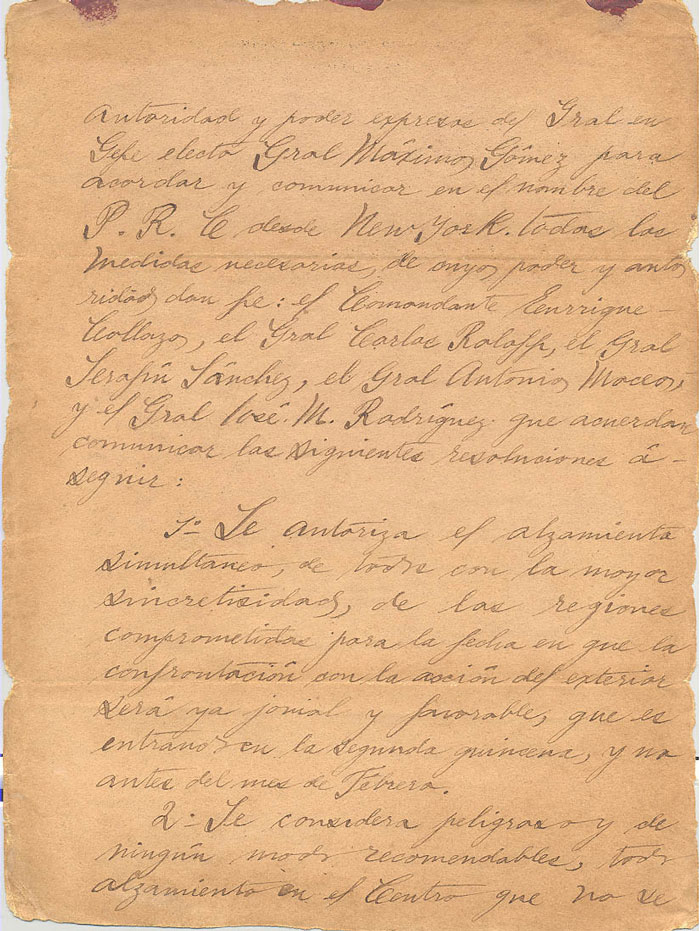 autoridad y poder expresos del Gral en
Gefe electo Gral Máximo Gómez para
acordar y comunicar en el nombre del
P. R. C desde New York. todas las
medidas necesarias, de cuyo poder y auto
ridad dan fe: el Comandante Eurrique
Collazo, el Gral Carlos Roloff, el Gral
Serafín Sánchez, el Gral Antonio Maceo,
y el Gral José. M. Rodríguez que acuerdan
comunicar las siguientes resoluciones á-
seguir:
1º Se autoriza el alzamiento
simultaneo, de todos con la mayor
sincretisidad, de las regiones
comprometidas para la fecha en que la
confrontación con la acción del exterior
será ya jonial y favorable, que es
entrando en la segunda quincena, y no
antes del mes de Febrero.
2º Se considera peligroso y de
ningún modo recomendables, todo
alzamiento en el Centro que no se